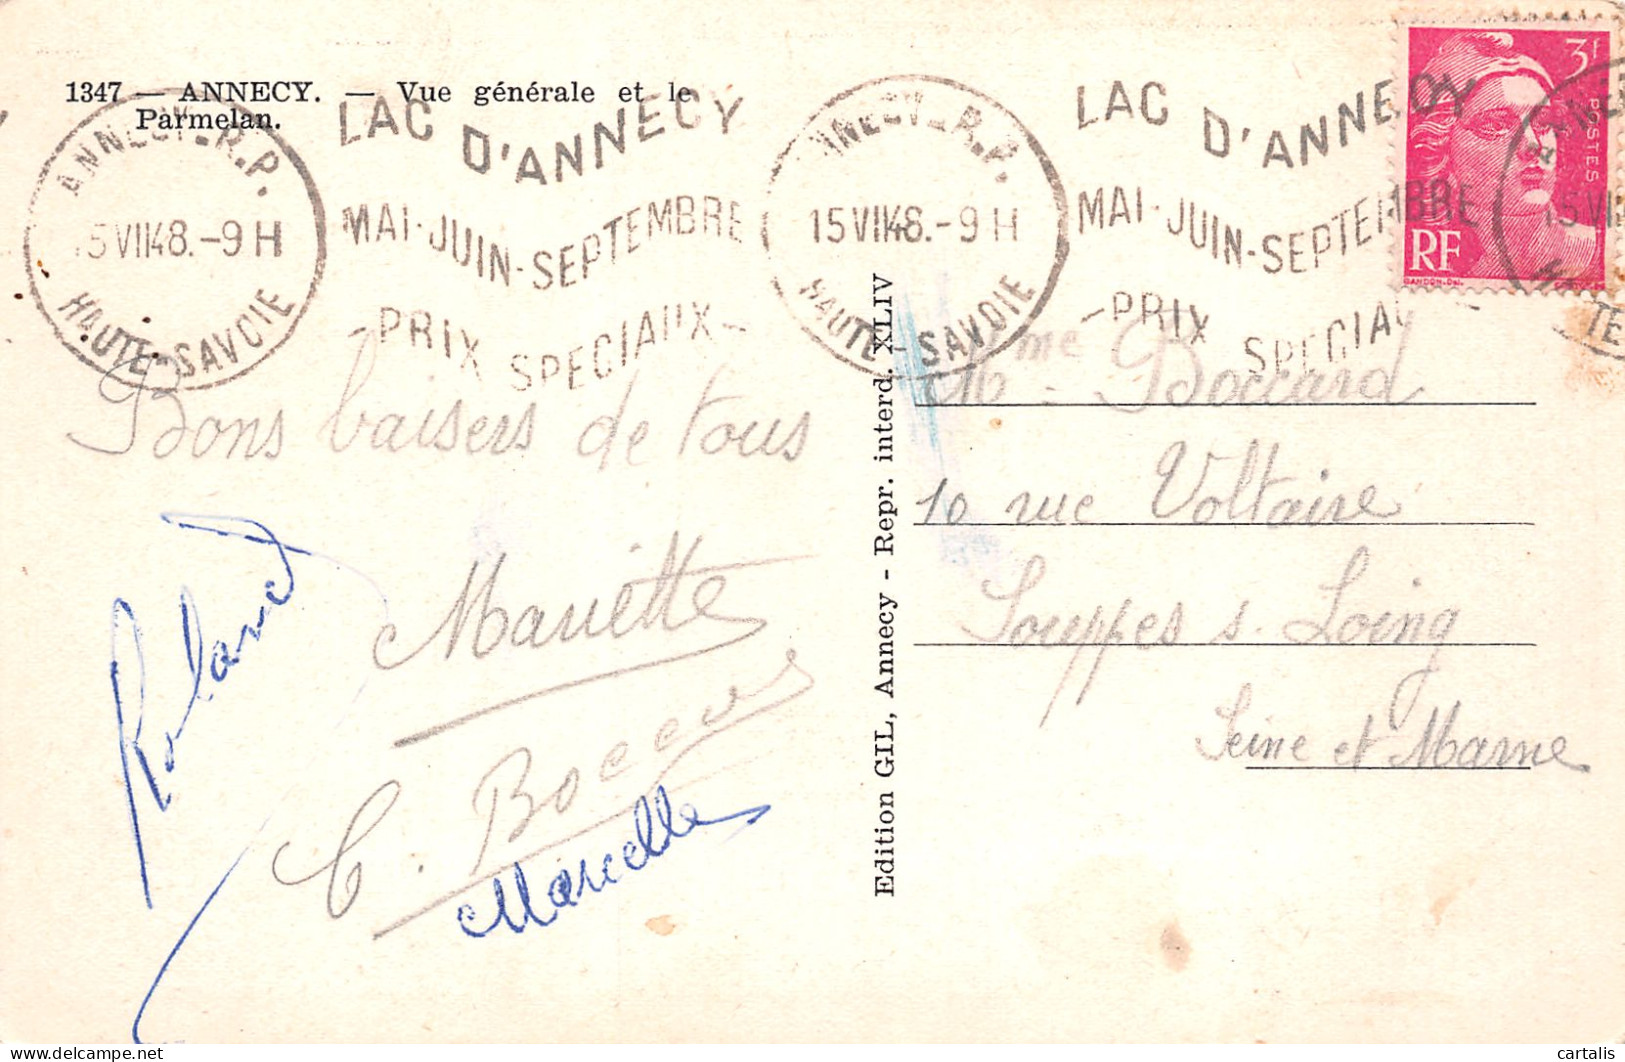 1347 — ANNECY. — Vue générale et le
Parmelan.
ANNECY-R.P.
15 VII 48.-9H
HAUTE-SAVOIE
LAC D'ANNECY
MAI-JUIN-SEPTEMBRE
-PRIX SPECIAUX-
ANNECY-R.P.
15 VII 48.-9H
HAUTE-SAVOIE
LAC D'ANNECY
MAI-JUIN-SEPTEMBRE
-PRIX SPECIAU
3F
POSTES
RF
GANDON-Del.
15 VII
Bons baisers de tous
Mariette
Roland
Marcelle
Edition GIL, Annecy - Repr. interd. XLIV
Mme Boccard
10 rue Voltaire
Souppes s. Loing
Seine et Marne
cartalis
delcampe.net